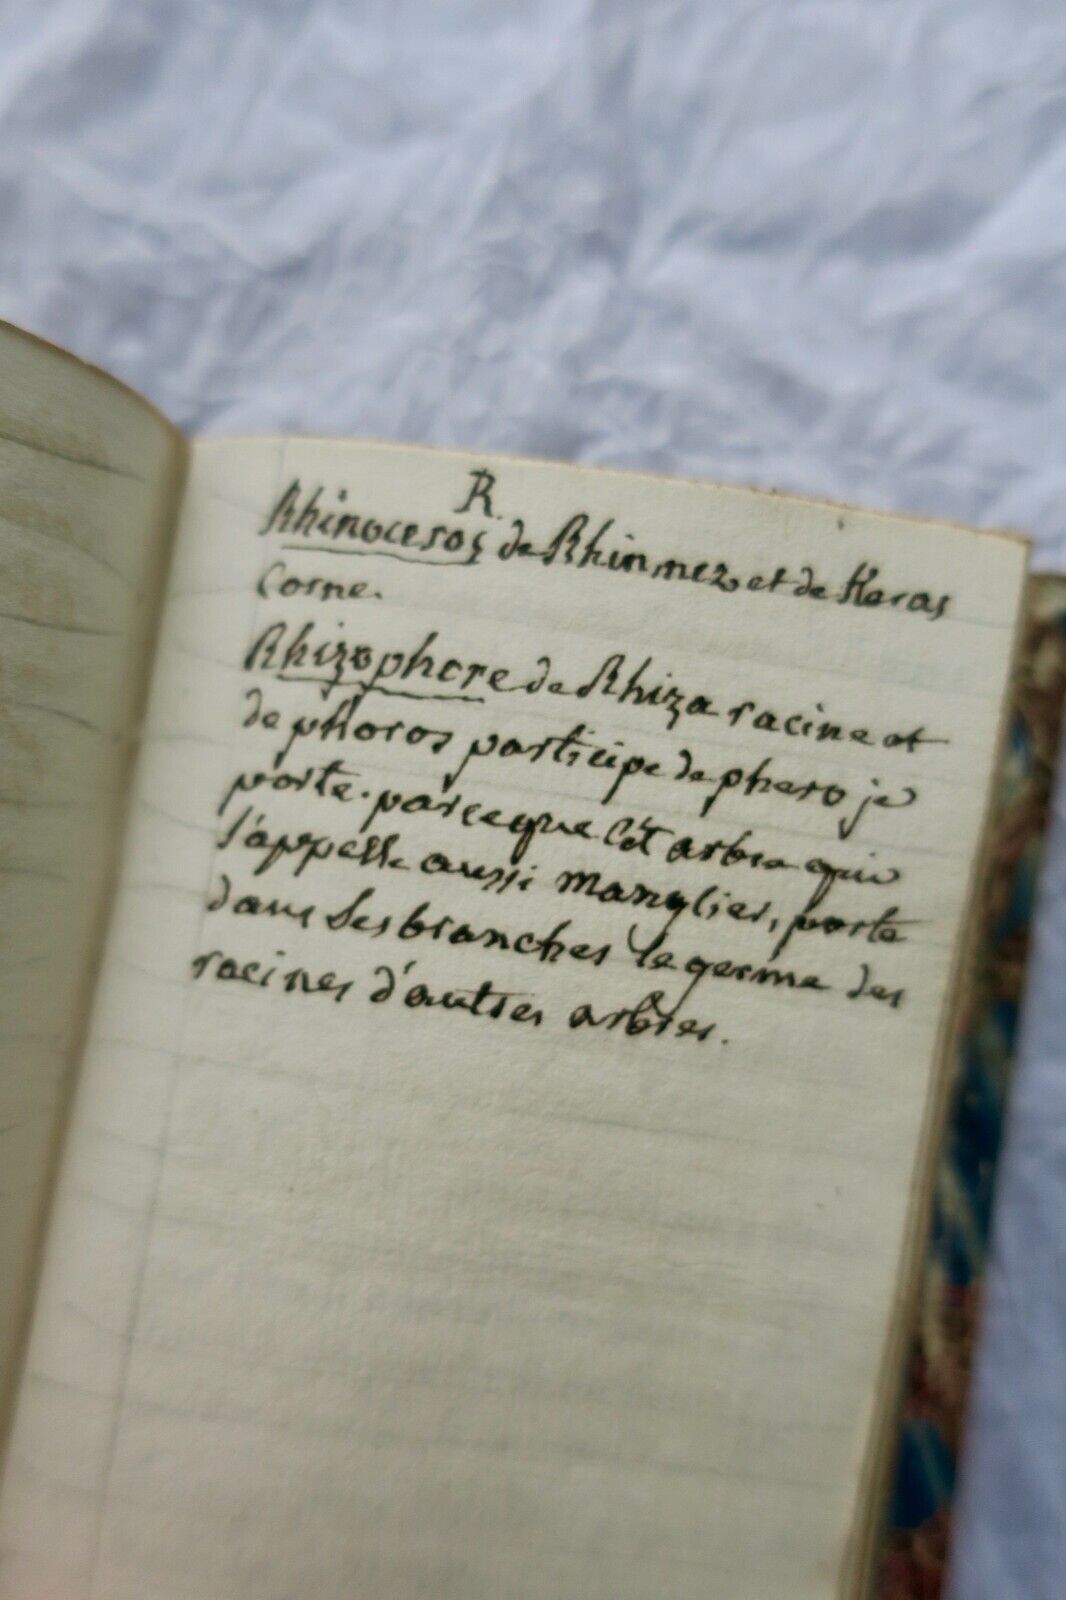 R.
Rhinoceros de Rhin, nez et de Keras
Corne.
Rhizophore de Rhiza racine et
de phoros participe de phero je
porte. parceque Cet arbre qui
s'appelle aussi manglier, porte
dans Ses branches le germe des
racines d'autres arbres.